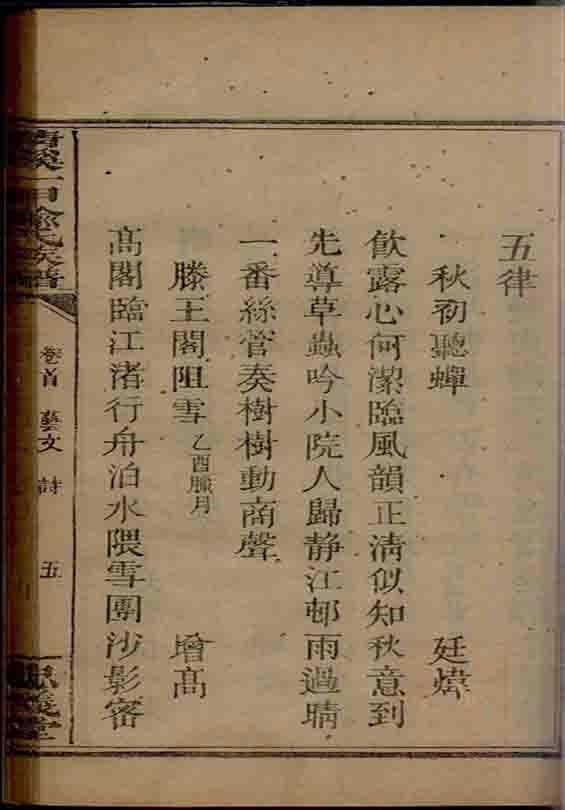 五律
秋初聽蟬 廷煒
飲露心何潔臨風韻正淸似知秋意到
先導草蟲吟小院人歸静江邨雨過晴
一番絲管奏樹樹動商聲
滕王閣阻雪 乙酉臘月 增高
髙閣臨江渚行舟泊水隈雪團沙影密
氏族譜
卷首 藝文 詩 五
義堂